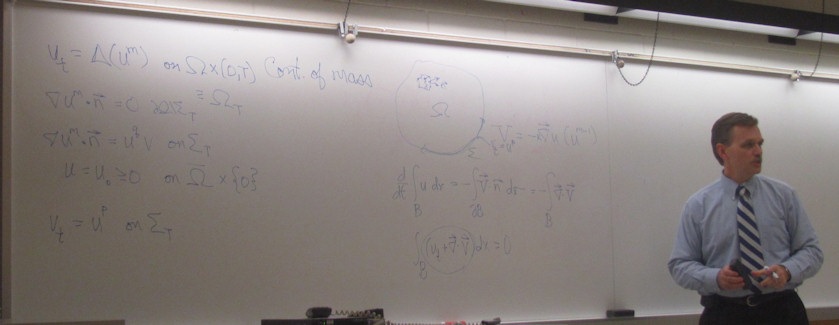 u_t = Δ(u^m) on Ω×(0,T) Cont. of mass
≡ Ω_T
∇u^m · n⃗ = 0
∇u^m · n⃗ = u^q v on Σ_T
u = u_0 ≥ 0 on Ω̄ × {0}
v_t = u^p on Σ_T
Ω
Σ
d/dt ∫_B u dx = -∫_∂B V⃗ n⃗ ds = -∫_B ∇⃗ V⃗
∫_B (u_t + ∇⃗·V⃗) dx = 0